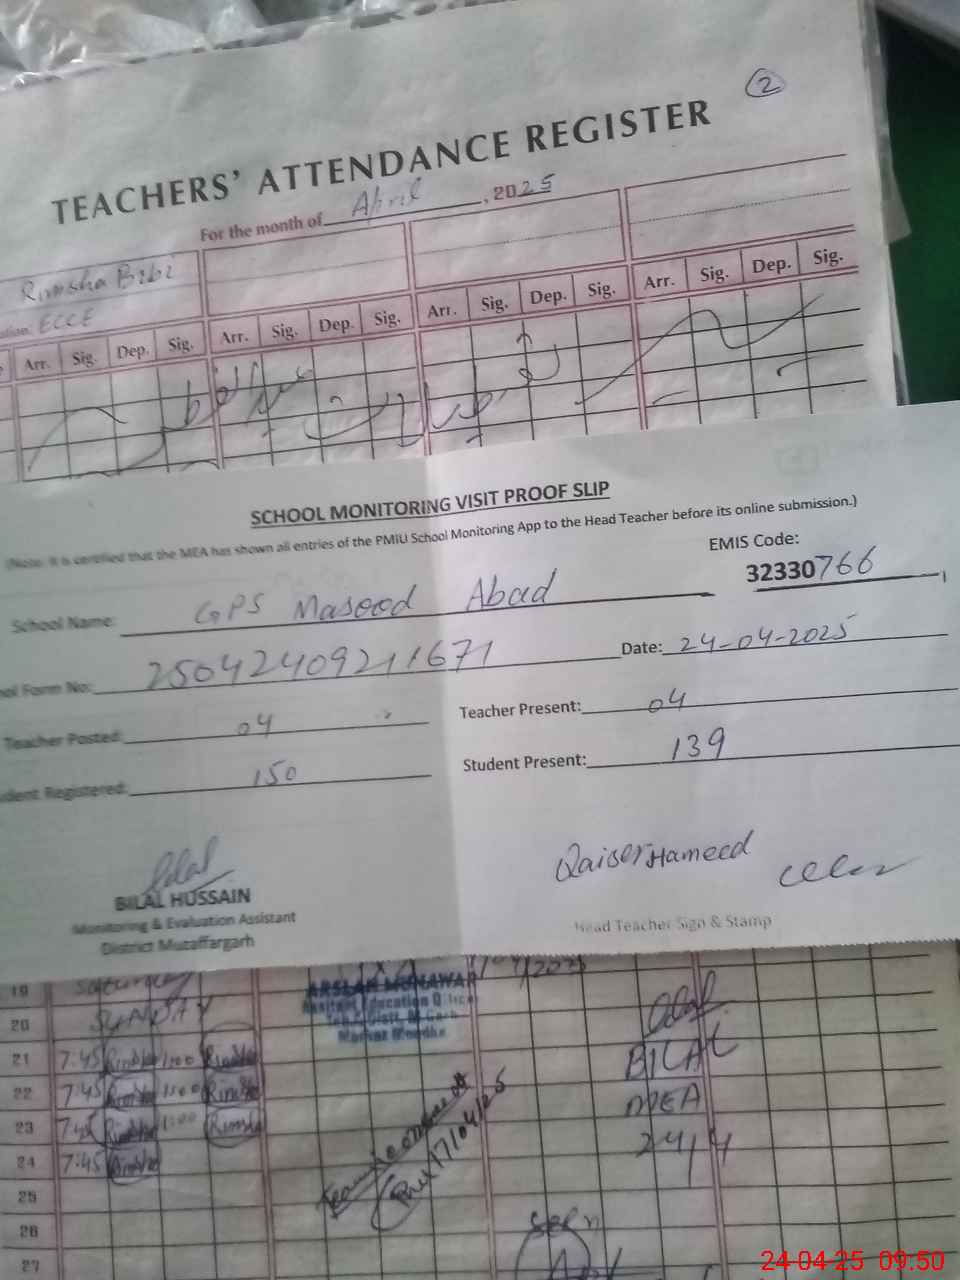 2
TEACHERS' ATTENDANCE REGISTER
For the month of April, 2025
Rimsha Bibi
ECCE
Arr. Sig. Dep. Sig. Arr. Sig. Dep. Sig. Arr. Sig. Dep. Sig. Arr. Sig. Dep. Sig.
SCHOOL MONITORING VISIT PROOF SLIP
(Note: It is certified that the MEA has shown all entries of the PMIU School Monitoring App to the Head Teacher before its online submission.)
EMIS Code:
32330766
School Name: GPS Masood Abad
ool Form No: 25042409211671
Date: 24-04-2025
Teacher Posted: 04
Teacher Present: 04
udent Registered: 150
Student Present: 139
Qaiser Hameed
BILAL HUSSAIN
Monitoring & Evaluation Assistant
District Muzaffargarh
Head Teacher Sign & Stamp
19 Saturday
ARSLAN MUNAWAR
Assistant Education Officer
20 SUNDAY
21 7:45 Rimsha 1:00 Rimsha
22 7:45 Rimsha 1:00 Rimsha
23 7:45 Rimsha 1:00 Rimsha
24 7:45 Rimsha
BILAL
MEA
24/4
17/04/25
25
26
Seen
27
24-04-25 09:50